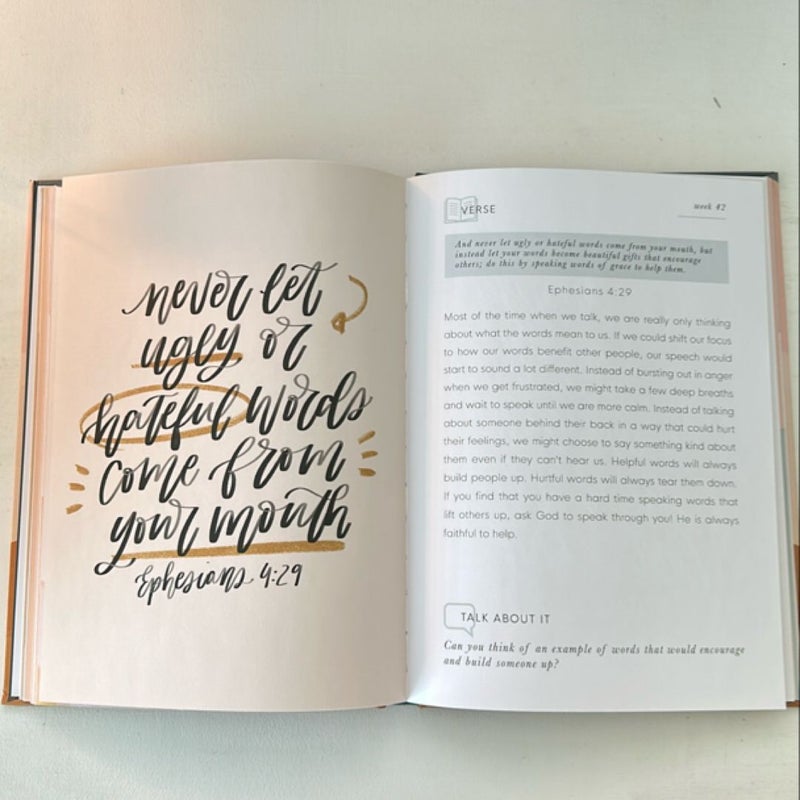 never let
ugly or
hateful words
come from
your mouth
Ephesians 4:29
VERSE
week 42
And never let ugly or hateful words come from your mouth, but
instead let your words become beautiful gifts that encourage
others; do this by speaking words of grace to help them.
Ephesians 4:29
Most of the time when we talk, we are really only thinking
about what the words mean to us. If we could shift our focus
to how our words benefit other people, our speech would
start to sound a lot different. Instead of bursting out in anger
when we get frustrated, we might take a few deep breaths
and wait to speak until we are more calm. Instead of talking
about someone behind their back in a way that could hurt
their feelings, we might choose to say something kind about
them even if they can't hear us. Helpful words will always
build people up. Hurtful words will always tear them down.
If you find that you have a hard time speaking words that
lift others up, ask God to speak through you! He is always
faithful to help.
TALK ABOUT IT
Can you think of an example of words that would encourage
and build someone up?